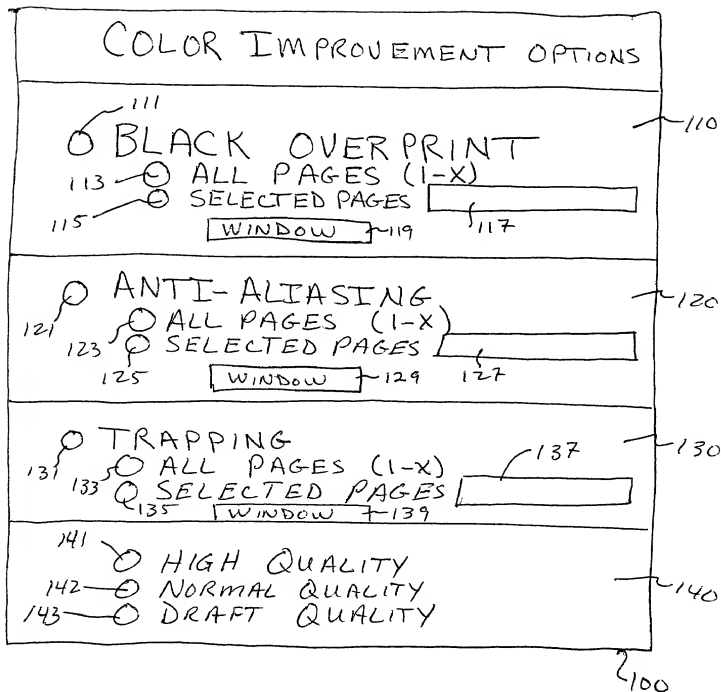 COLOR IMPROVEMENT OPTIONS
111
110
BLACK OVERPRINT
113 ALL PAGES (1-X)
115 SELECTED PAGES
WINDOW 119 117
121 ANTI-ALIASING 120
123 ALL PAGES (1-X)
125 SELECTED PAGES
WINDOW 129 127
131 TRAPPING 130
133 ALL PAGES (1-X) 137
135 SELECTED PAGES
WINDOW 139
141 HIGH QUALITY
142 NORMAL QUALITY 140
143 DRAFT QUALITY
100